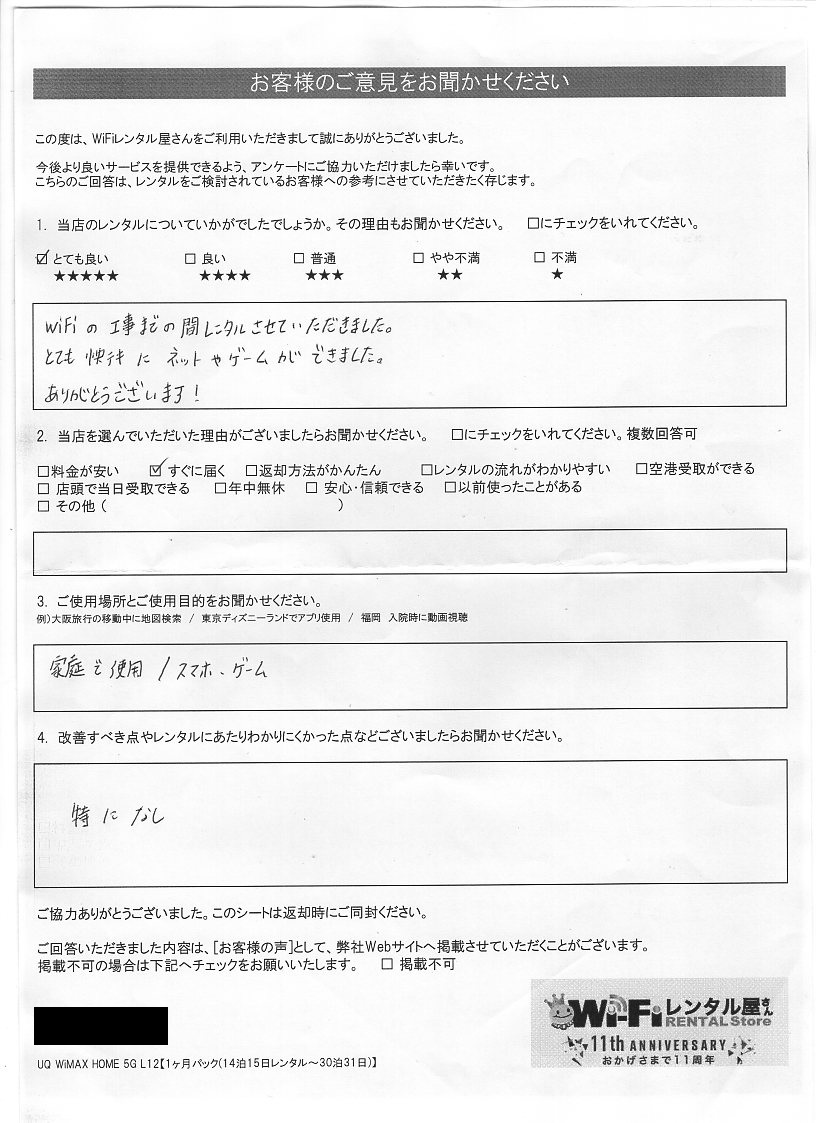 お客様のご意見をお聞かせください
この度は、WiFiレンタル屋さんをご利用いただきまして誠にありがとうございました。
今後より良いサービスを提供できるよう、アンケートにご協力いただけましたら幸いです。
こちらのご回答は、レンタルをご検討されているお客様への参考にさせていただきたく存じます。
1. 当店のレンタルについていかがでしたでしょうか。その理由もお聞かせください。 □にチェックをいれてください。
☑ とても良い □ 良い □ 普通 □ やや不満 □ 不満
★★★★★ ★★★★ ★★★ ★★ ★
WiFiの工事までの間レンタルさせていただきました。
とても快テキにネットやゲームができました。
ありがとうございます!
2. 当店を選んでいただいた理由がございましたらお聞かせください。 □にチェックをいれてください。複数回答可
□料金が安い ☑ すぐに届く □返却方法がかんたん □レンタルの流れがわかりやすい □空港受取ができる
□ 店頭で当日受取できる □年中無休 □ 安心・信頼できる □以前使ったことがある
□ その他 ( )
3. ご使用場所とご使用目的をお聞かせください。
例)大阪旅行の移動中に地図検索 / 東京ディズニーランドでアプリ使用 / 福岡 入院時に動画視聴
家庭で使用 / スマホ、ゲーム
4. 改善すべき点やレンタルにあたりわかりにくかった点などございましたらお聞かせください。
特になし
ご協力ありがとうございました。このシートは返却時にご同封ください。
ご回答いただきました内容は、[お客様の声]として、弊社Webサイトへ掲載させていただくことがございます。
掲載不可の場合は下記へチェックをお願いいたします。 □ 掲載不可
Wi-Fiレンタル屋さん
RENTAL Store
11th ANNIVERSARY
おかげさまで11周年
UQ WiMAX HOME 5G L12【1ヶ月パック(14泊15日レンタル~30泊31日)】